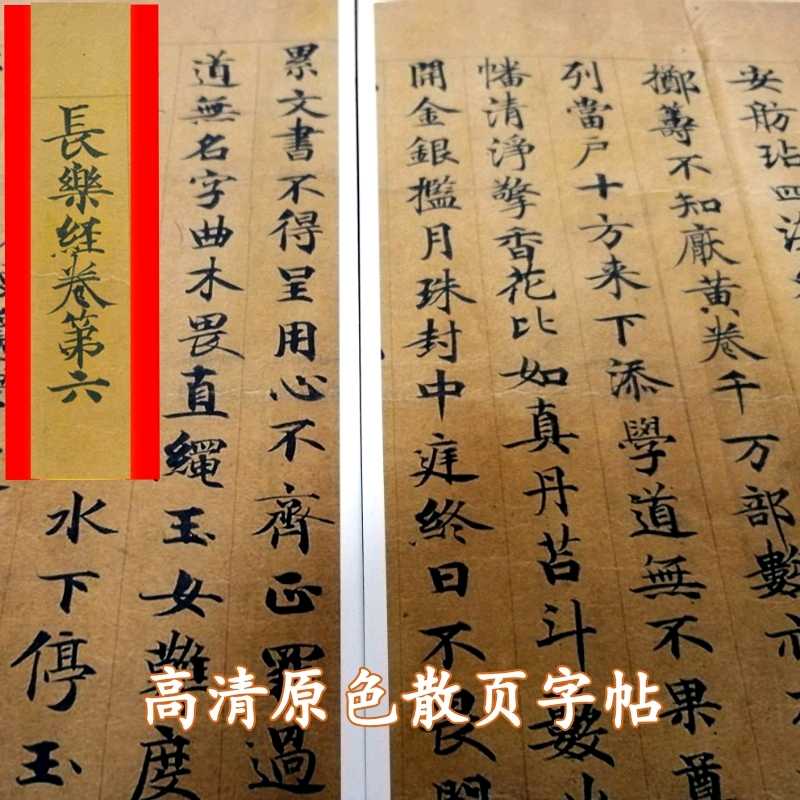 安舫玷四
擲籌不知厭黃卷千万部數亦
列當户十方来下添學道無不果尊
幡清淨擎香花比如真丹苔斗藪
開金銀攔月珠封中庭終日不畏門
累文書不得呈用心不齊正罪過
道無名字曲木畏直繩玉女難度
水下停玉
長樂経卷第六
高清原色散页字帖